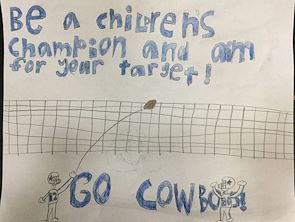 Be a childrens
champion and am
for your target!
GO COWBOYS!